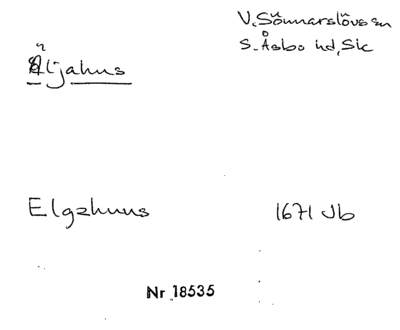 V. Sönnarslövs sn
S. Åsbo hd, Sk
Äljahus
Elgzhuus 1671 Jb
Nr 18535